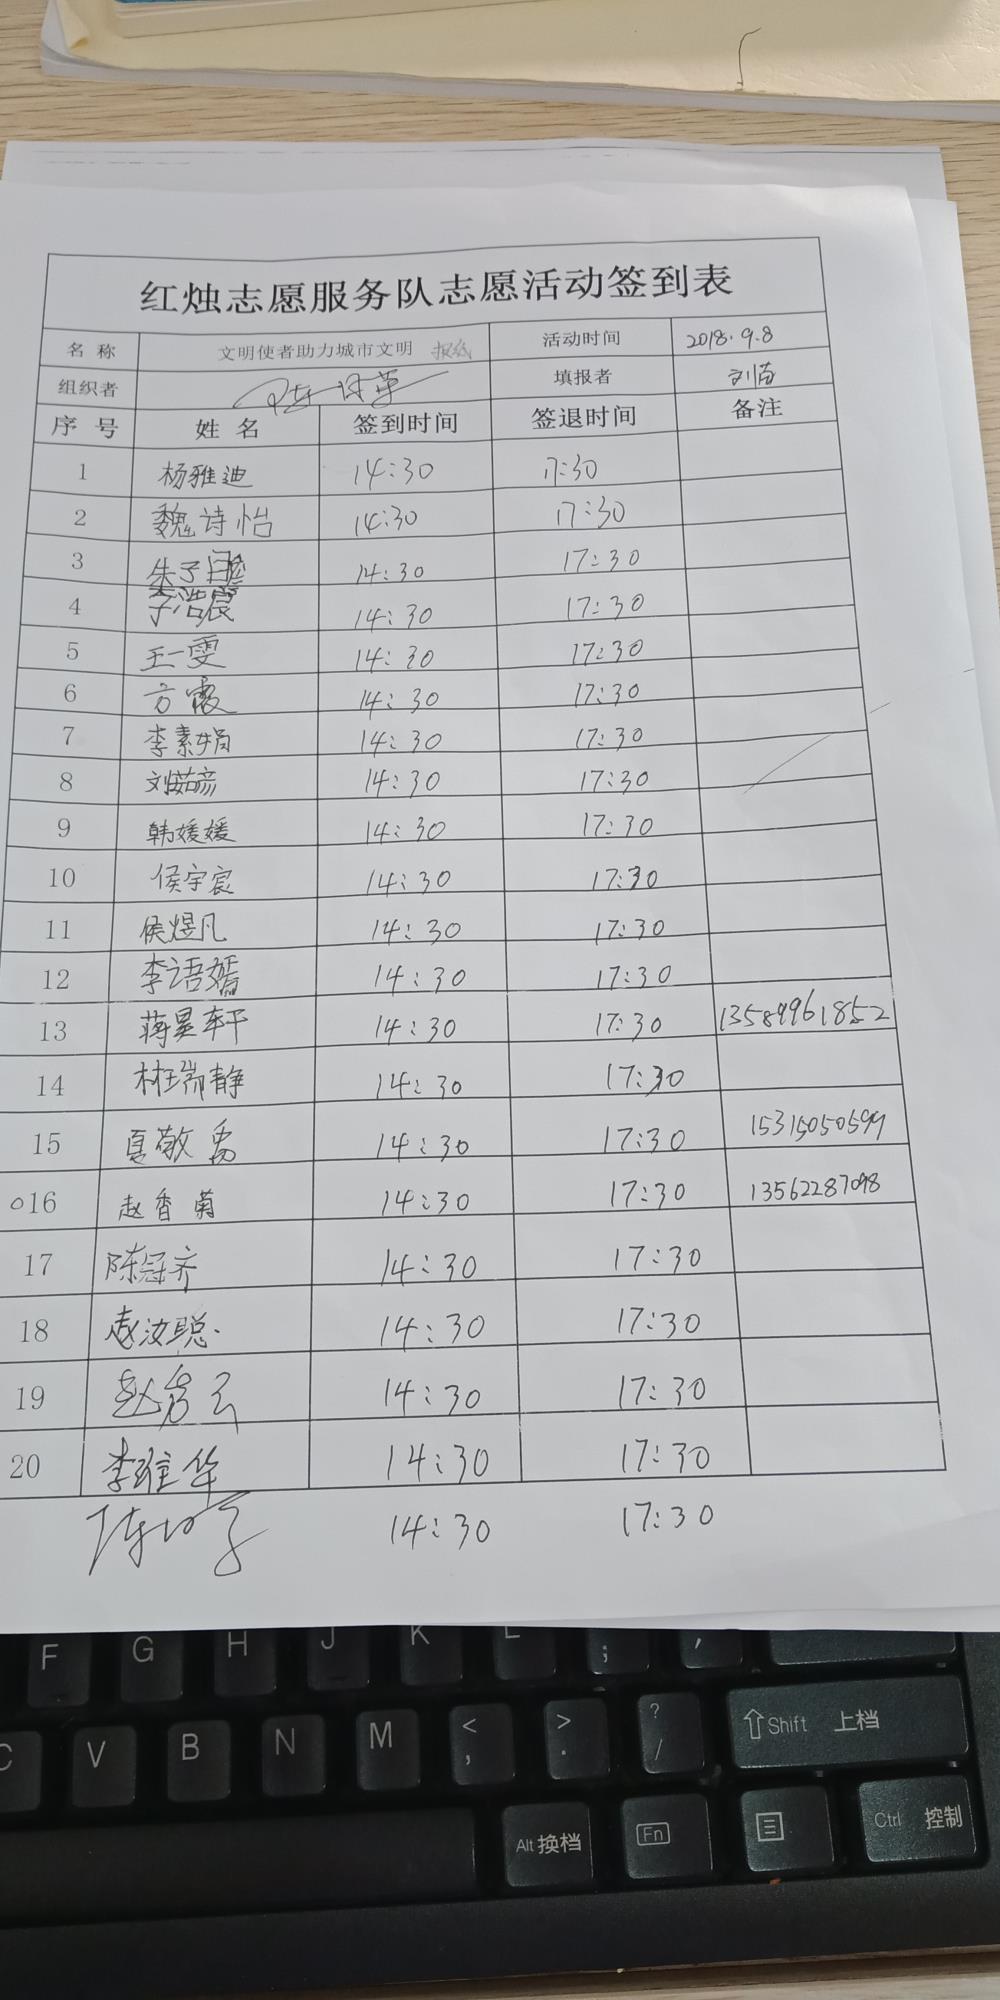 红烛志愿服务队志愿活动签到表
名 称 文明使者助力城市文明 报纸 活动时间 2018.9.8
组织者 填报者
序 号 姓 名 签到时间 签退时间 备注
1 杨雅迪 14:30 17:30
2 魏诗怡 14:30 17:30
3 朱子 14:30 17:30
4 李浩宸 14:30 17:30
5 王一雯 14:30 17:30
6 方霞 14:30 17:30
7 李素娟 14:30 17:30
8 刘茹彦 14:30 17:30
9 韩媛媛 14:30 17:30
10 侯宇宸 14:30 17:30
11 侯煜凡 14:30 17:30
12 李语嫣 14:30 17:30
13 蒋昊轩 14:30 17:30 13589961852
14 林瑞静 14:30 17:30
15 夏敬禹 14:30 17:30 15315050599
016 赵香菊 14:30 17:30 13562287098
17 陈冠齐 14:30 17:30
18 赵汝聪 14:30 17:30
19 赵秀云 14:30 17:30
20 李维华 14:30 17:30
14:30 17:30
F G H J K L ; '
C V B N M < , > . ? / ⇧Shift 上档
Alt 换档 Fn Ctrl 控制